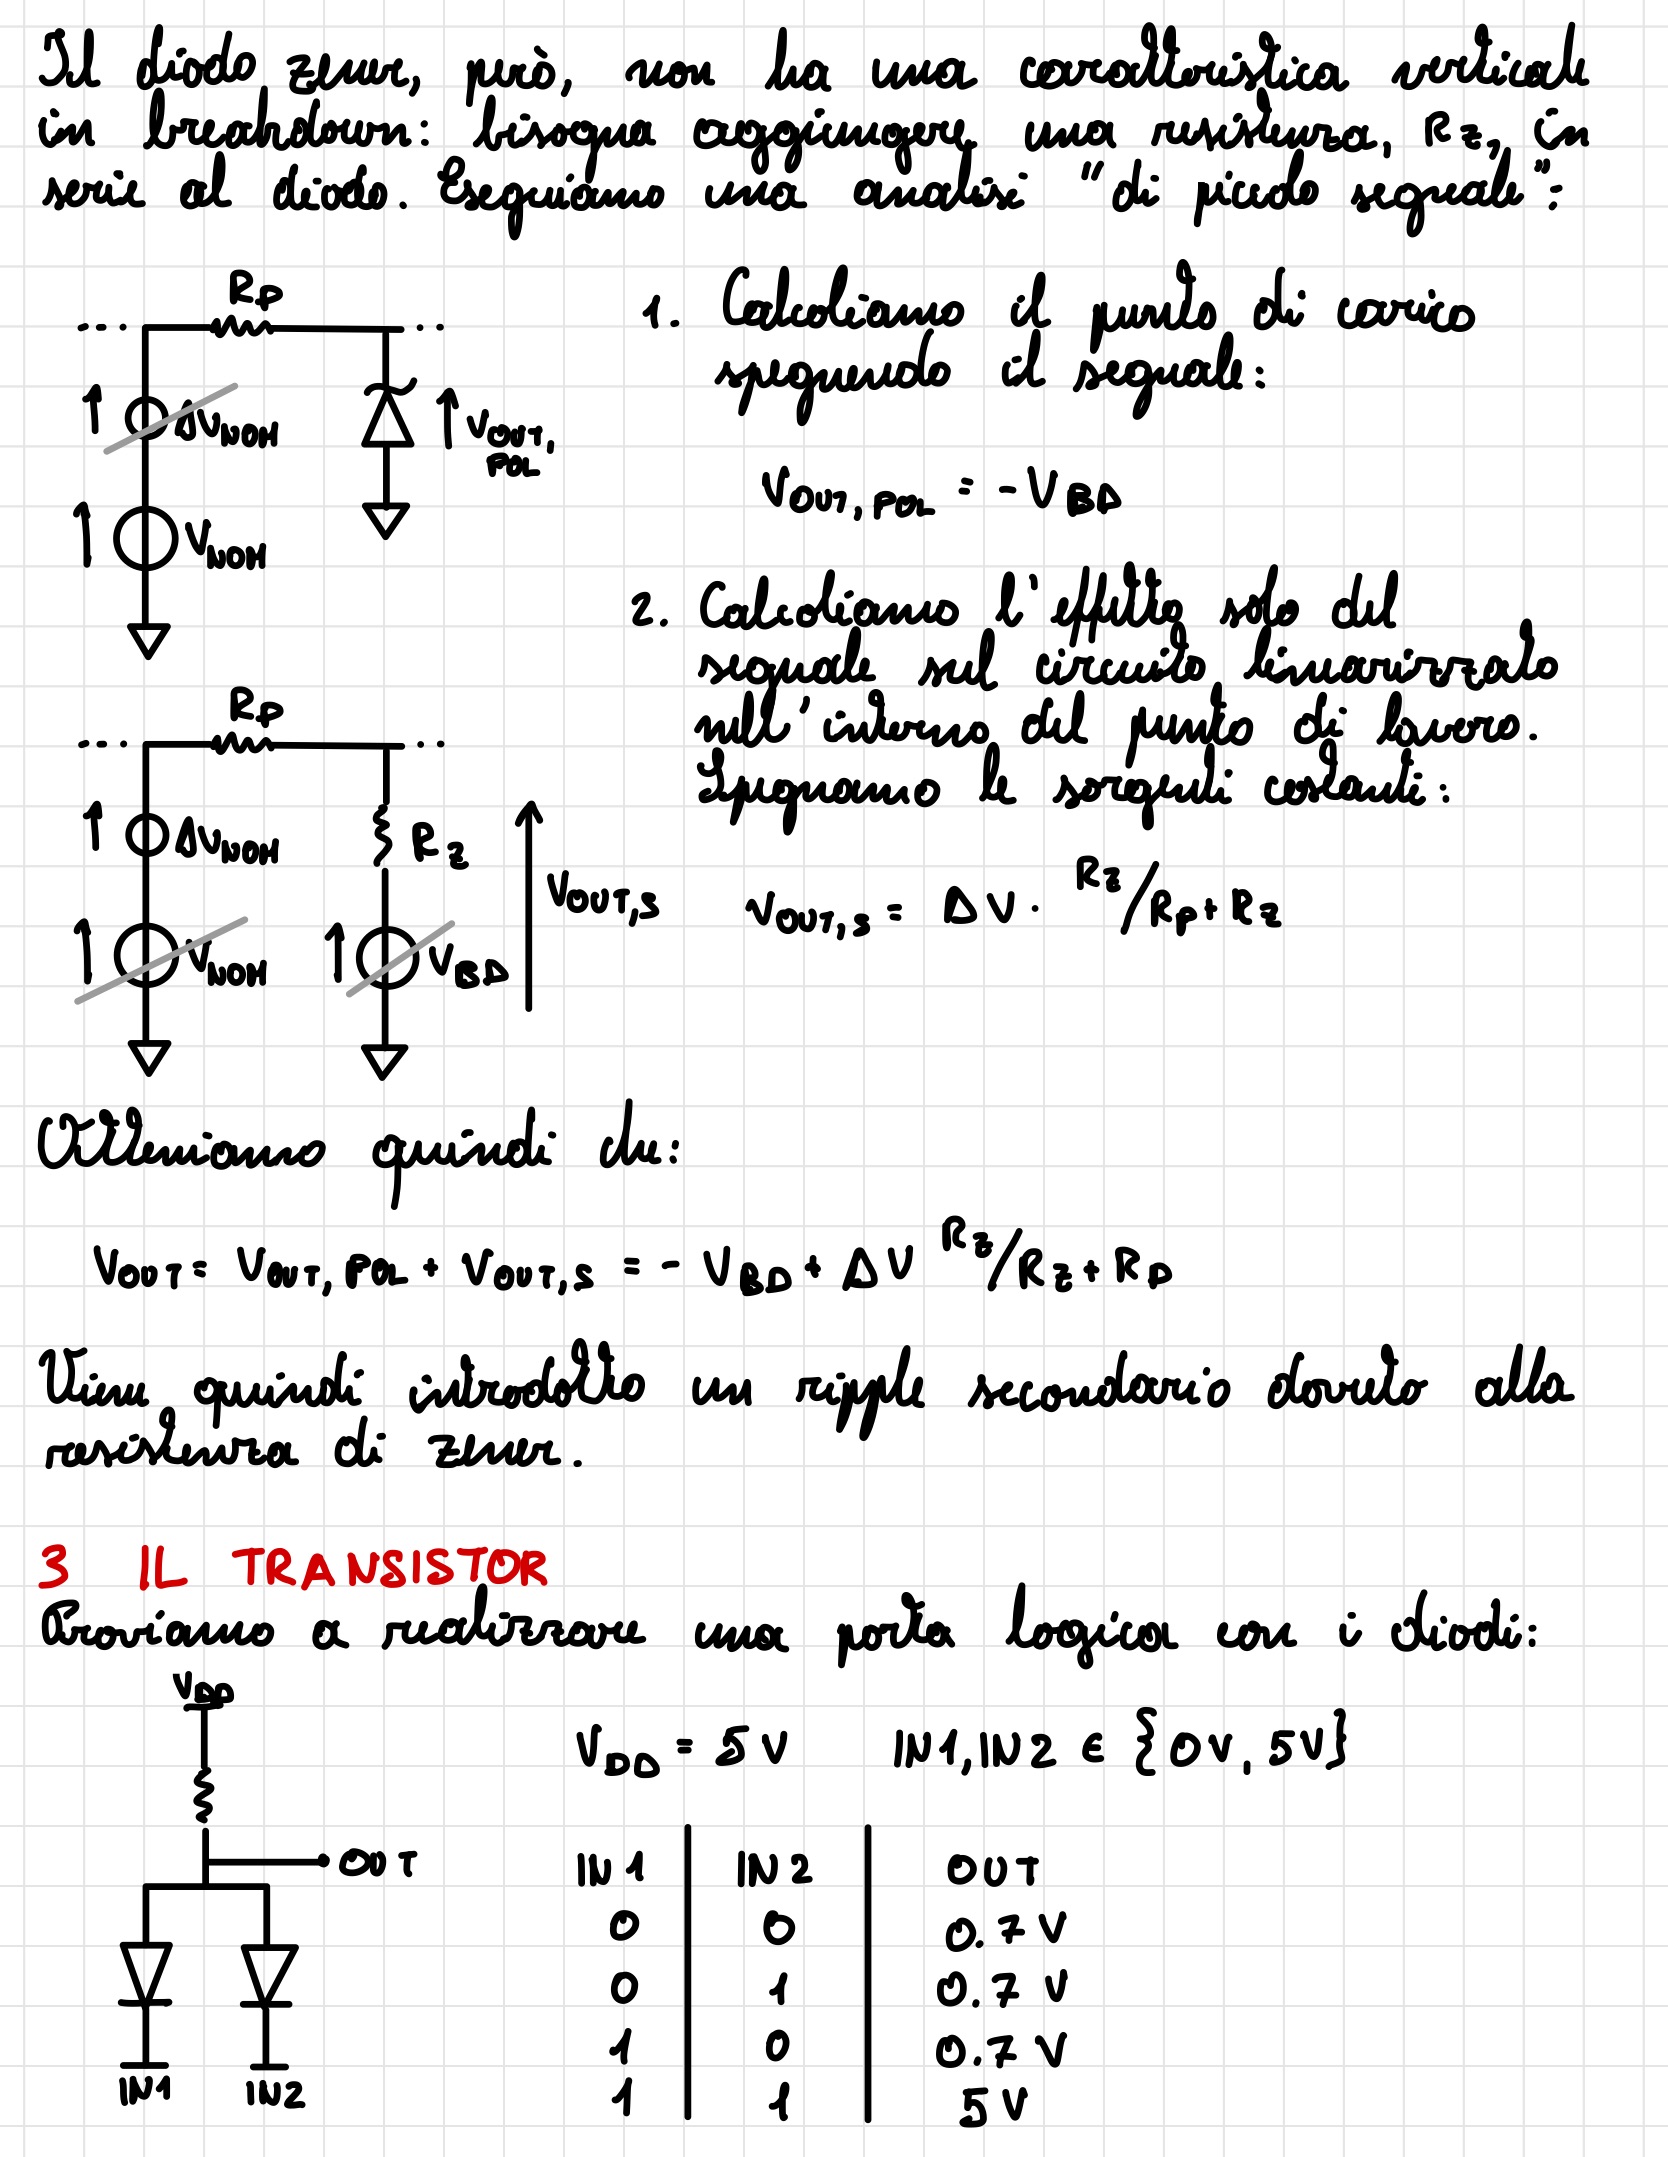 Il diodo zener, però, non ha una caratteristica verticale
in breakdown: bisogna aggiungere una resistenza, RZ, in
serie al diodo. Eseguiamo una analisi "di piccolo segnale":
RP
1. Calcoliamo il punto di carico
spegnendo il segnale:
ΔVNOM
VOUT,
POL
VOUT, POL = -VBD
VNOM
2. Calcoliamo l'effetto solo del
segnale sul circuito linearizzato
nell'interno del punto di lavoro.
Spegnamo le sorgenti costanti:
RP
ΔVNOM
RZ
VOUT,S
VOUT,S = ΔV · RZ/RP+RZ
VNOM
VBD
Otteniamo quindi che:
VOUT = VOUT, POL + VOUT,S = - VBD + ΔV RZ/RZ+RP
Viene quindi introdotto un ripple secondario dovuto alla
resistenza di zener.
3 IL TRANSISTOR
Proviamo a realizzare una porta logica con i diodi:
VDD
VDD = 5V IN1,IN2 ∈ {0V, 5V}
OUT
IN1 IN2 OUT
0 0 0.7 V
0 1 0.7 V
1 0 0.7 V
1 1 5V
IN1 IN2